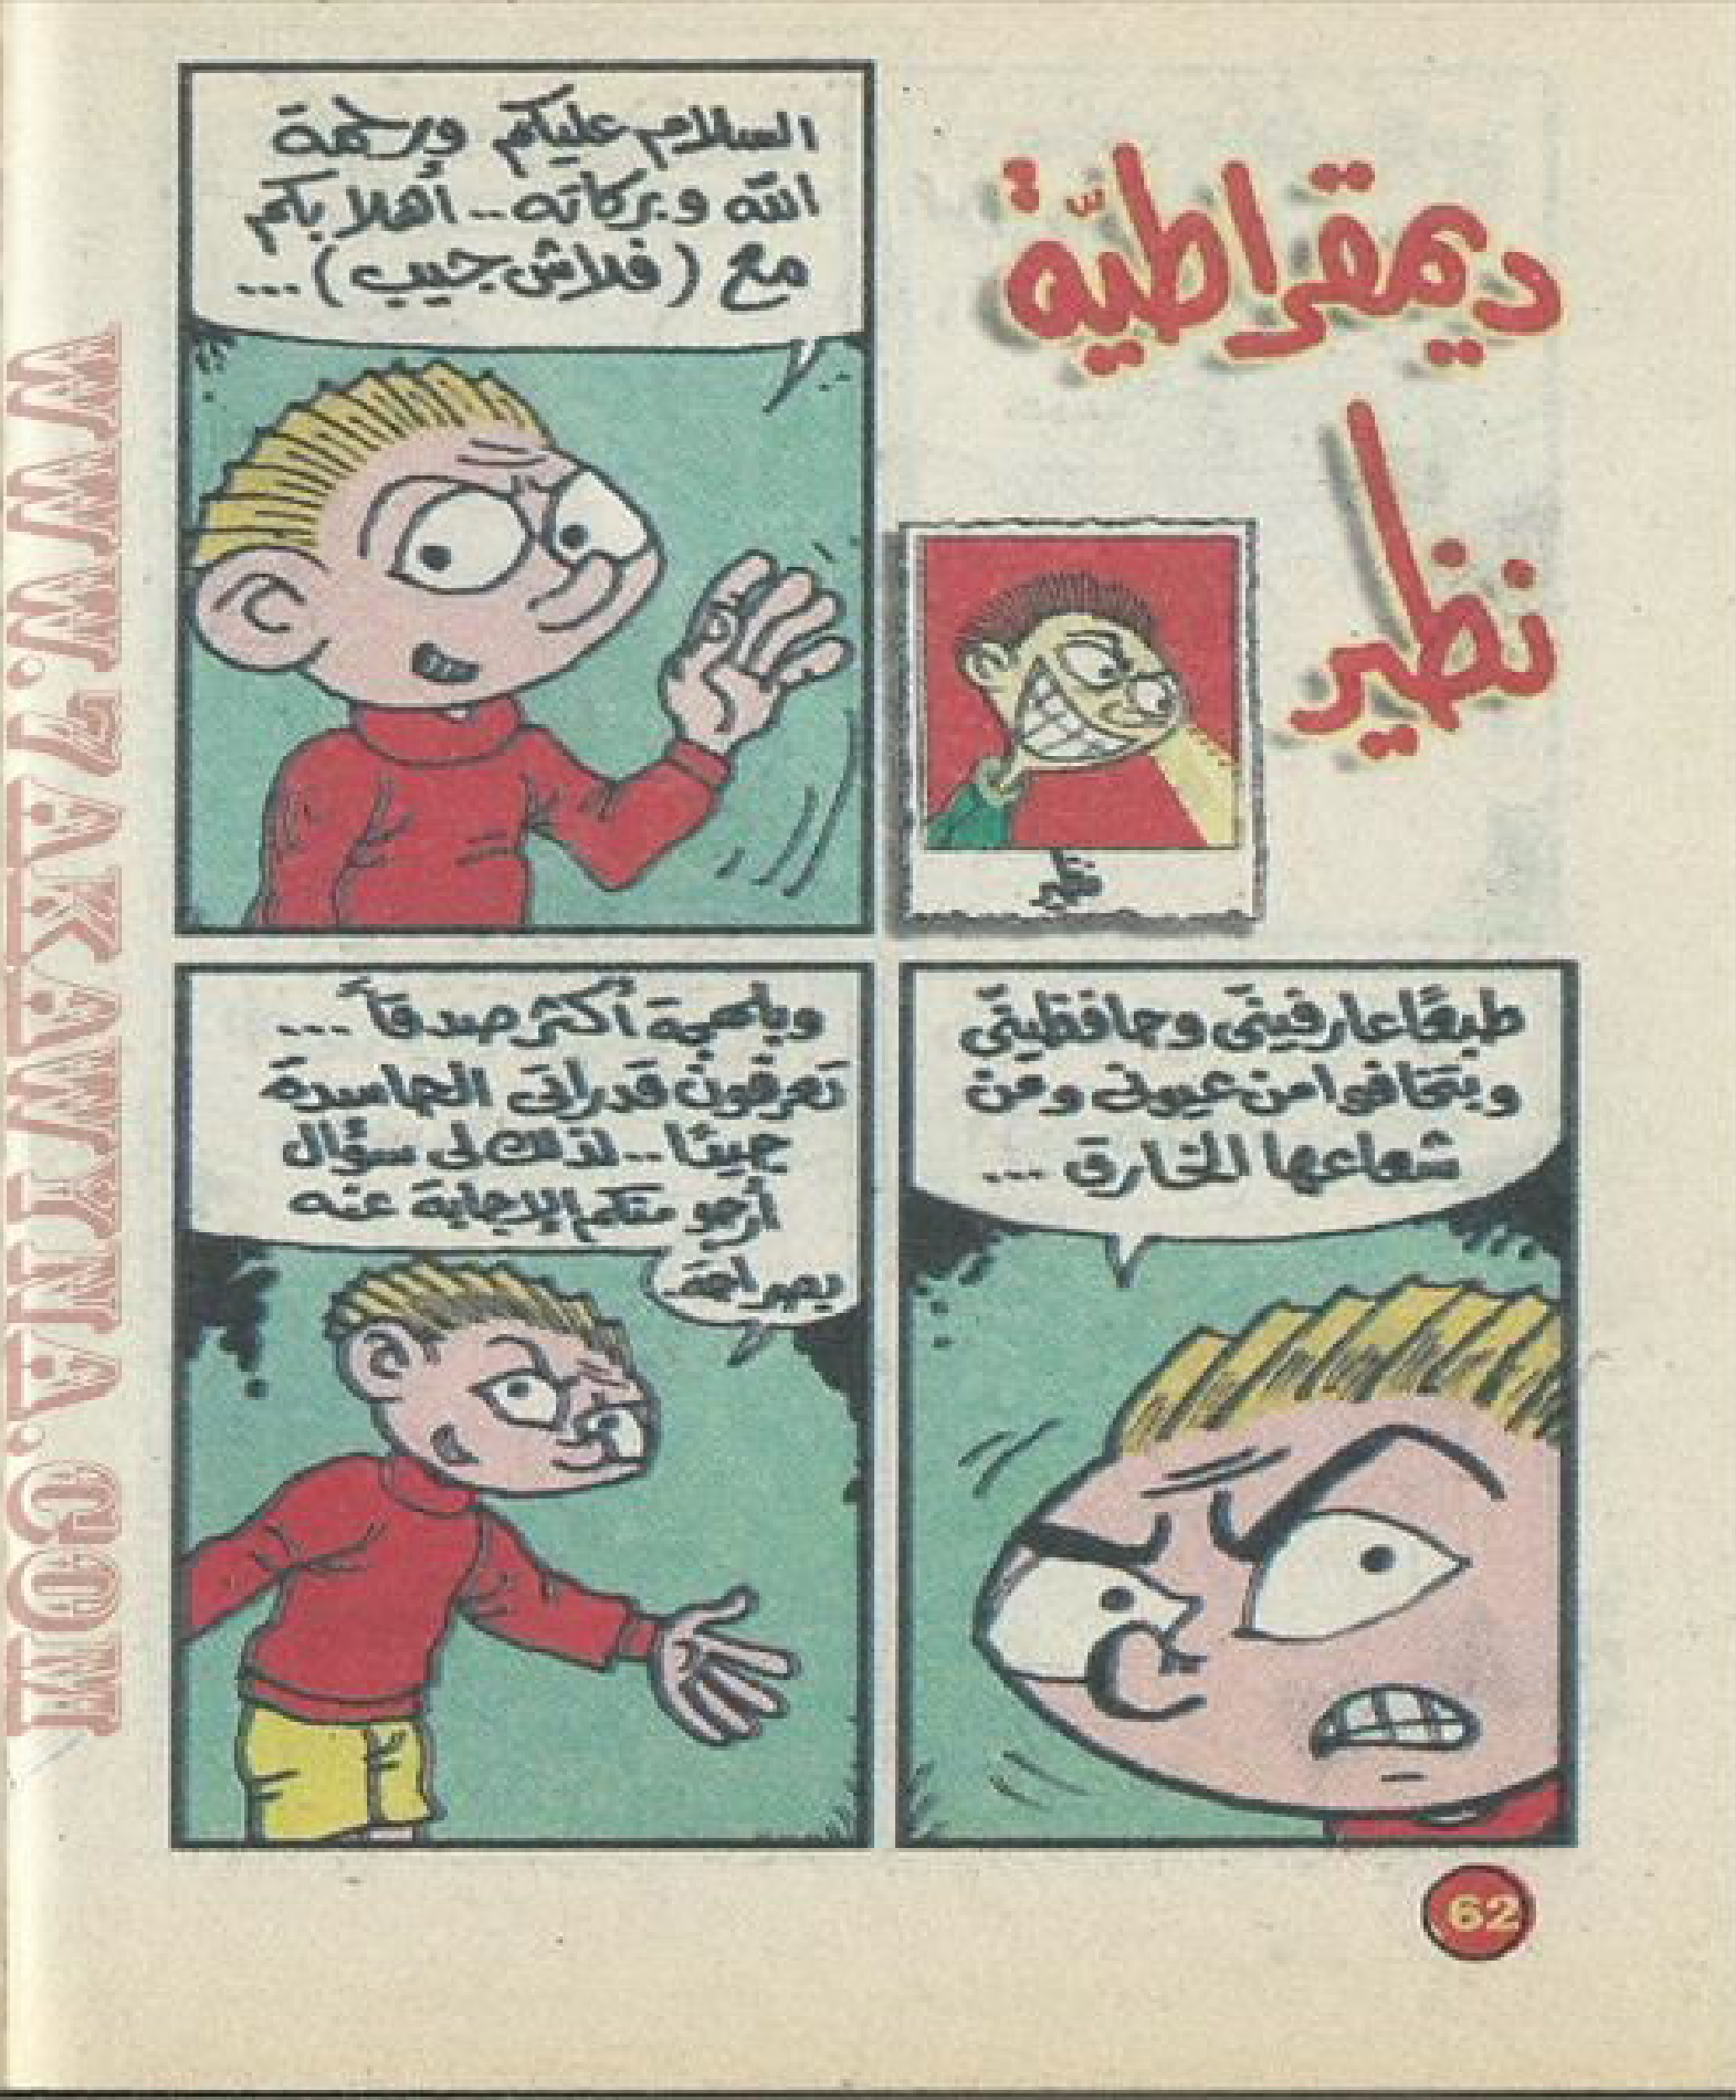 ديمقراطيّة
نظير
نظير
السلام عليكم ورحمة
الله وبركاته.. أهلا بكم
مع (فلاش جيب)...
طبعًا عارفينّى وحافظينّى
وبتخافوا من عيونى ومن
شعاعها الخارق ...
وبلهجة أكثر صدقاً ...
تعرفون قدراتى الحاسدة
جيدًا.. لذلك لى سؤال
أرجو منكم الإجابة عنه
بصراحة
62
WWW.ZAKAWAKANNA.COM